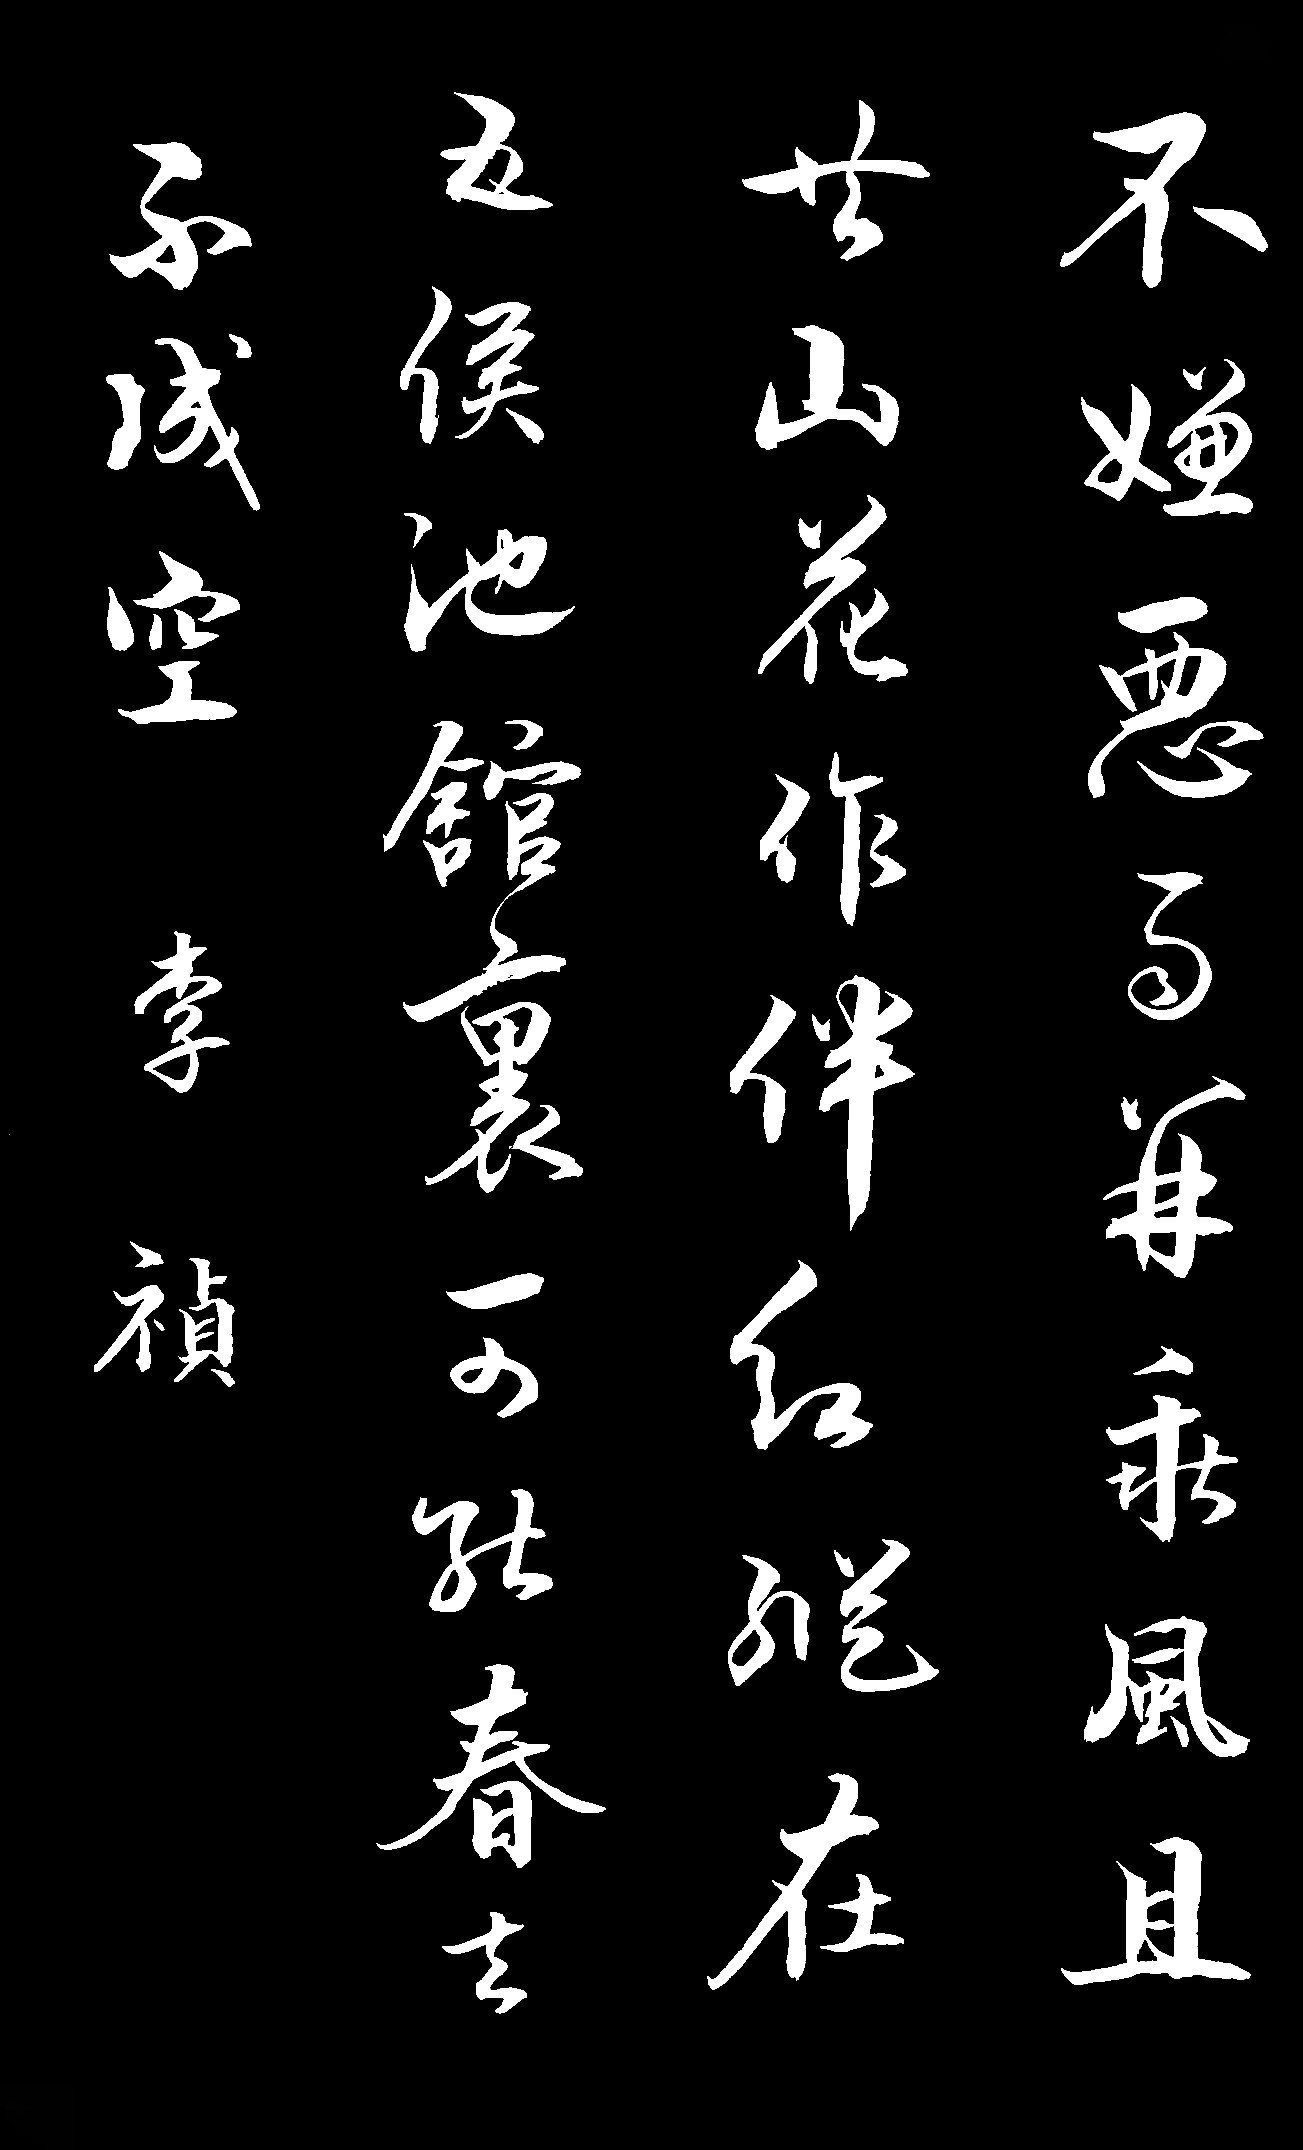 不嫌惡雨并乖風且
共山花作伴紅縱在
五侯池舘裏可能春去
不成空 李禎